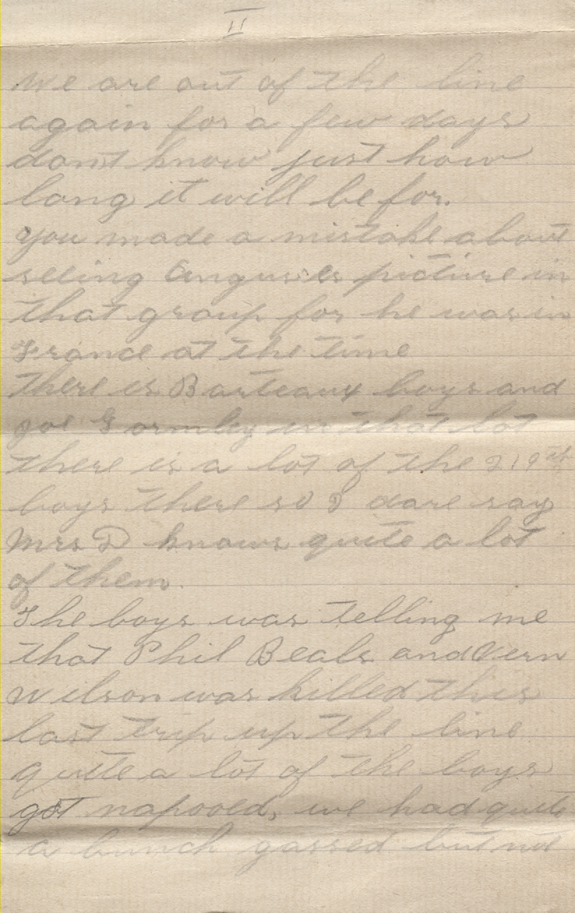 II
We are out of the line
again for a few days
dont know just how
long it will be for.
you made a mistake about
seeing Anguses picture in
that group for he was in
France at the time
there is Barteaux boys and
Joe Gormley in that lot
there is a lot of the 219th
boys there so I dare say
Mrs D knows quite a lot
of them.
The boys was telling me
that Phil Beals and Vern
Wilson was killed this
last trip up the line
quite a lot of the boys
got napooed, we had quite
a bunch gassed but not